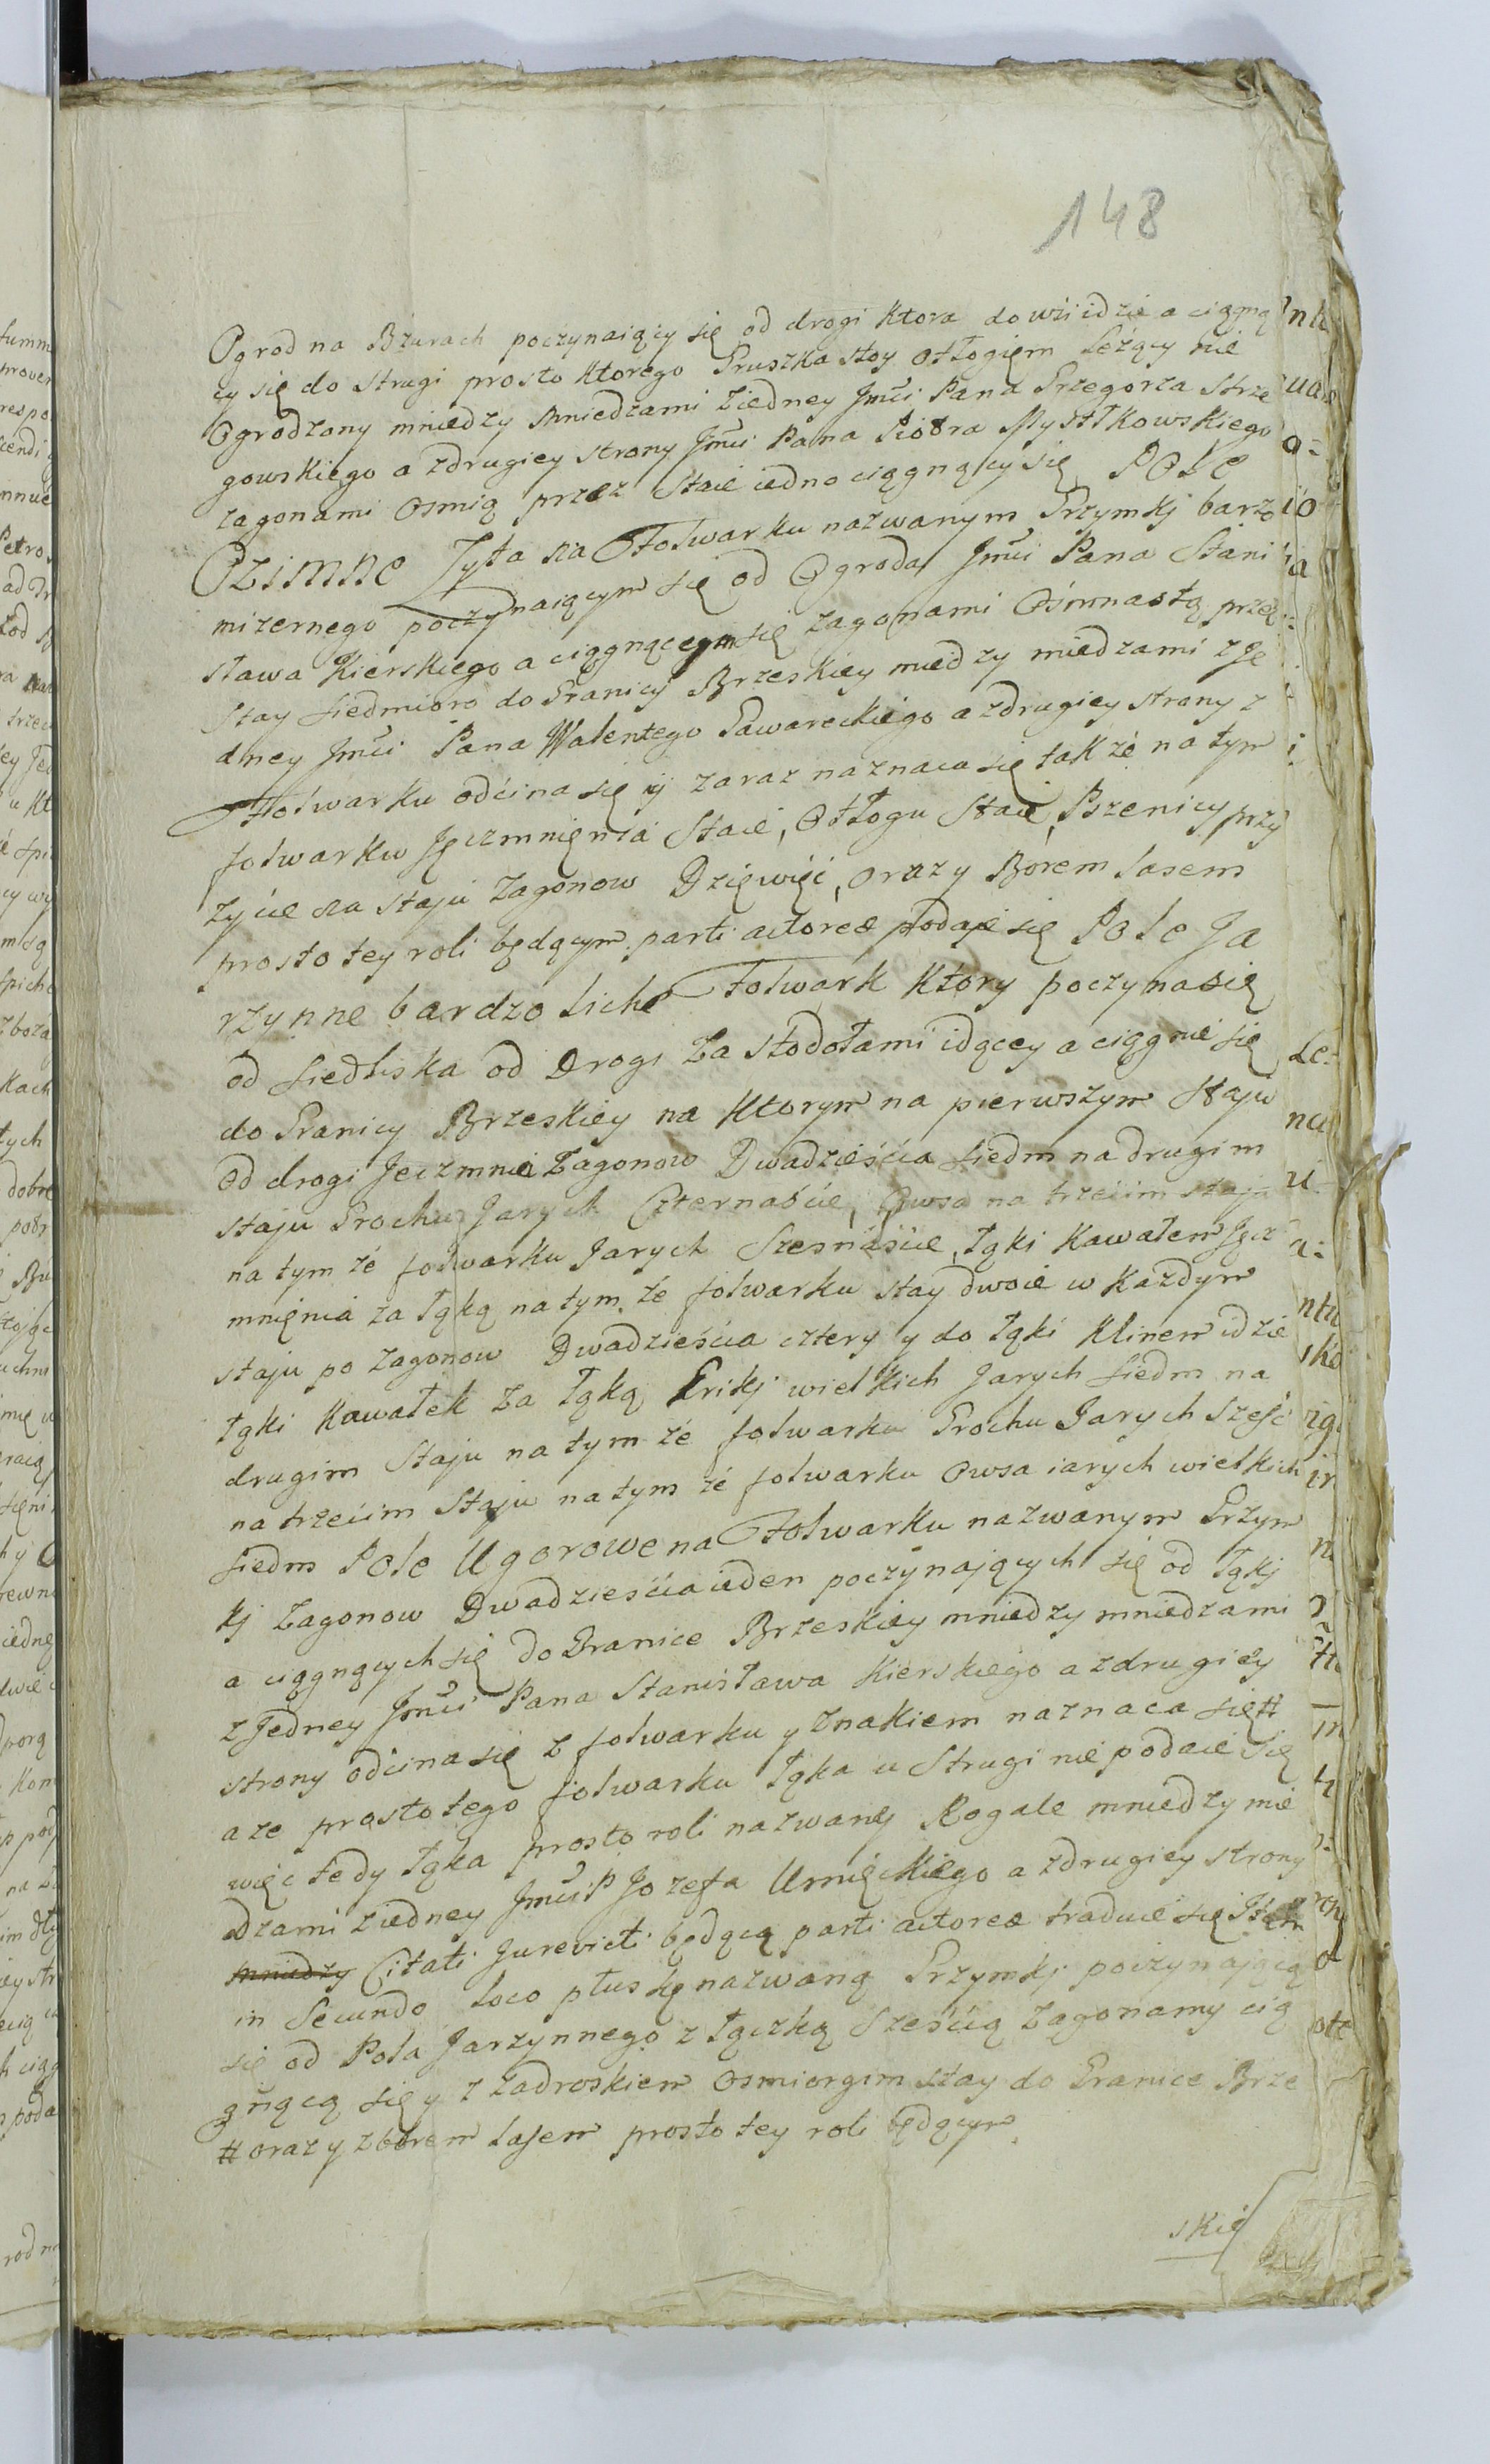 148
Ogrod na Bzurach poczynaiący się od drogi ktora do wsi idzie a ciągną
cy się do strugi prosto ktorego Gruszka stoy Otłogięm Leżący nie
Ogrodzony mniedzy mniedzami ziedney Jmci Pana Grzegorza Strze
gowskiego a zdrugiey strony Jmci Pana Piotra Mystkowskiego
zagonami Osmią przez staie iedno ciągnący się POLE
Ozimne Zyta na Ffolwarku nazwanym Grzymkj barzo
mizernego poczynaiącym się od Ogroda Jmci Pana Stani
sława Kierskiego a ciągnącegm się zagonami Ośmnastą przez
Stay siedmioro do Granicy Brzeskiey miedzy miedzami z Je
dney Jmci Pana Walentego Gawareckiego a zdrugiey strony z
Ffolwarku odcina się ij zaraz naznaca się tak ze na tym
folwarku Jęczmnięnia Staie, Otłogu Staie, Pszenicy przy
zycie na staju zagonow Dzięwięć, orazy Borem lasem
prosto tey roli będącym parti actoreæ podaje się Pole Ja
rzynne bardzo liche Ffolwark ktory poczyna się
od siedliska od Drogi za stodołami idącey a ciągnie się
do Granicy Brzeskiey na ktorym na pierwszym Staju
Od drogi Jeczmnia Zagonow Dwadzieścia siedm na drugim
staju Grochu Jarych Czternaście, Owsa na trzecim staju
na tym ze folwarku Jarych Szesnaście, Łąki kawałem Jęcz
mnięnia za łąką na tym ze folwarku stay dwoie w kazdym
staju po zagonow Dwadzieścia cztery y do łąki klinem idzie
łąki kawałek za łąką Grikj wielkich Jarych siedm na
drugim Staju na tym ze folwarku Grochu Jarych Sześć
na trzecim Staju na tym ze folwarku Owsa iarych wielkich
siedm Pole Ugorowe na Ffolwarku nazwanym Grzym
kj Zagonow Dwadzieścia ieden poczynających się od łąkj
a ciągnących się do Granice Brzeskiey mniedzy mniedzami
z Jedney Jmci Pana Stanisława Kierskiego a zdrugiey
strony odcina się z folwarku y znakiem naznaca się #
a ze prosto tego folwarku łąka u Strugi nie podaie się
więc tedy łąka prosto roli nazwany Rogale mniedzy mie
dzami ziedney Jmci P Jozefa Umięckiego a zdrugiey strony
mniedzy Citati Jurevicti będącą parti actoreæ traduie się Item
in Secundo loco płuskę nazwaną Grzymkj poczynającą
się od Pola Jarzynnego z łączką Sześcią zagonamy cią
gnącą się y z zadroskiem osmiorgim stay do Granice Brze
# orazy zborem lasem prosto tey roli będącym
skie